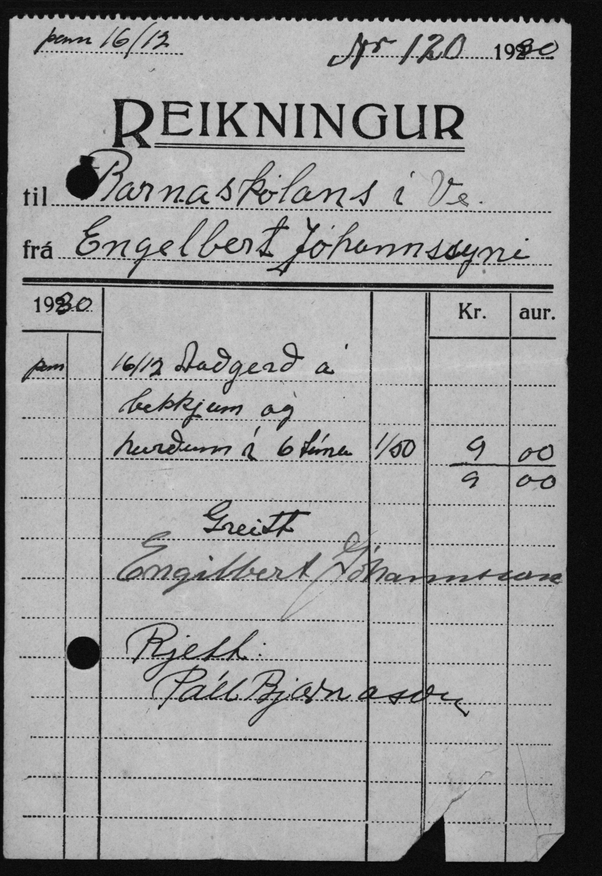 pann 16/12 Nr 120 1930
REIKNINGUR
til Barnaskólans í Ve.
frá Engelbert Jóhannssyni
1930 Kr. aur.
pann 16/12 Aadgerð á
bekkjum og
hurðum í 6 tíma 1/50 9 00
9 00
Greitt
Engilbert Jóhannsson
Rjett:
Páll Bjarnason